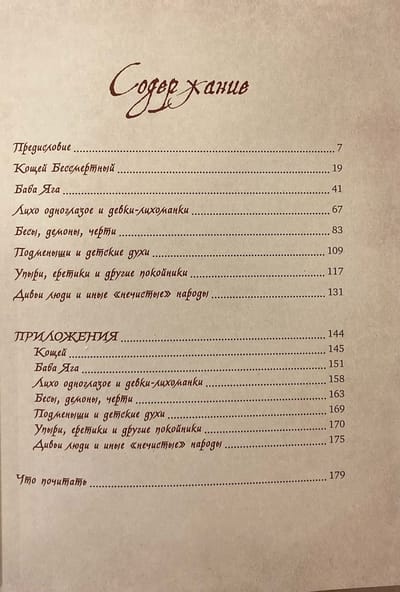 Содержание
Предисловие 7
Кощей Бессмертный 19
Баба Яга 41
Лихо одноглазое и девки-лихоманки 67
Бесы, демоны, черти 83
Подменыши и детские духи 109
Упыри, еретики и другие покойники 117
Дивьи люди и иные «нечистые» народы 131
ПРИЛОЖЕНИЯ 144
Кощей 145
Баба Яга 151
Лихо одноглазое и девки-лихоманки 158
Бесы, демоны, черти 163
Подменыши и детские духи 169
Упыри, еретики и другие покойники 170
Дивьи люди и иные «нечистые» народы 175
Что почитать 179